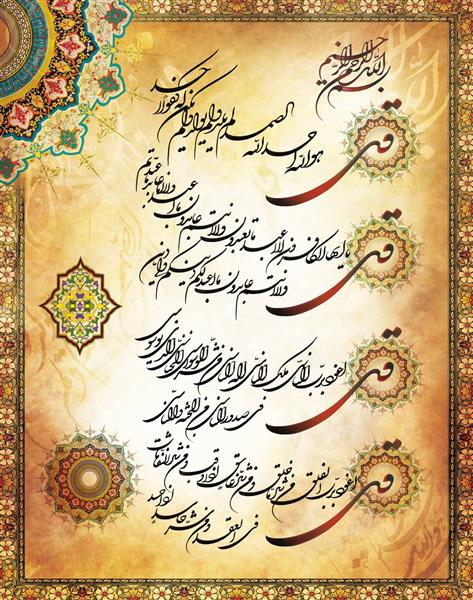 بسم الله الرحمن الرحیم
قل هو الله احد الله الصمد لم یلد و لم یولد و لم یکن له کفوا احد
قل یا ایها الکافرون لا اعبد ما تعبدون و لا انتم عابدون ما اعبد و لا انا عابد ما عبدتم
و لا انتم عابدون ما اعبد لکم دینکم ولی دین
قل اعوذ برب الناس ملک الناس اله الناس من شر الوسواس الخناس الذی یوسوس
فی صدور الناس من الجنة و الناس
قل اعوذ برب الفلق من شر ما خلق و من شر غاسق اذا وقب و من شر النفاثات
فی العقد و من شر حاسد اذا حسد